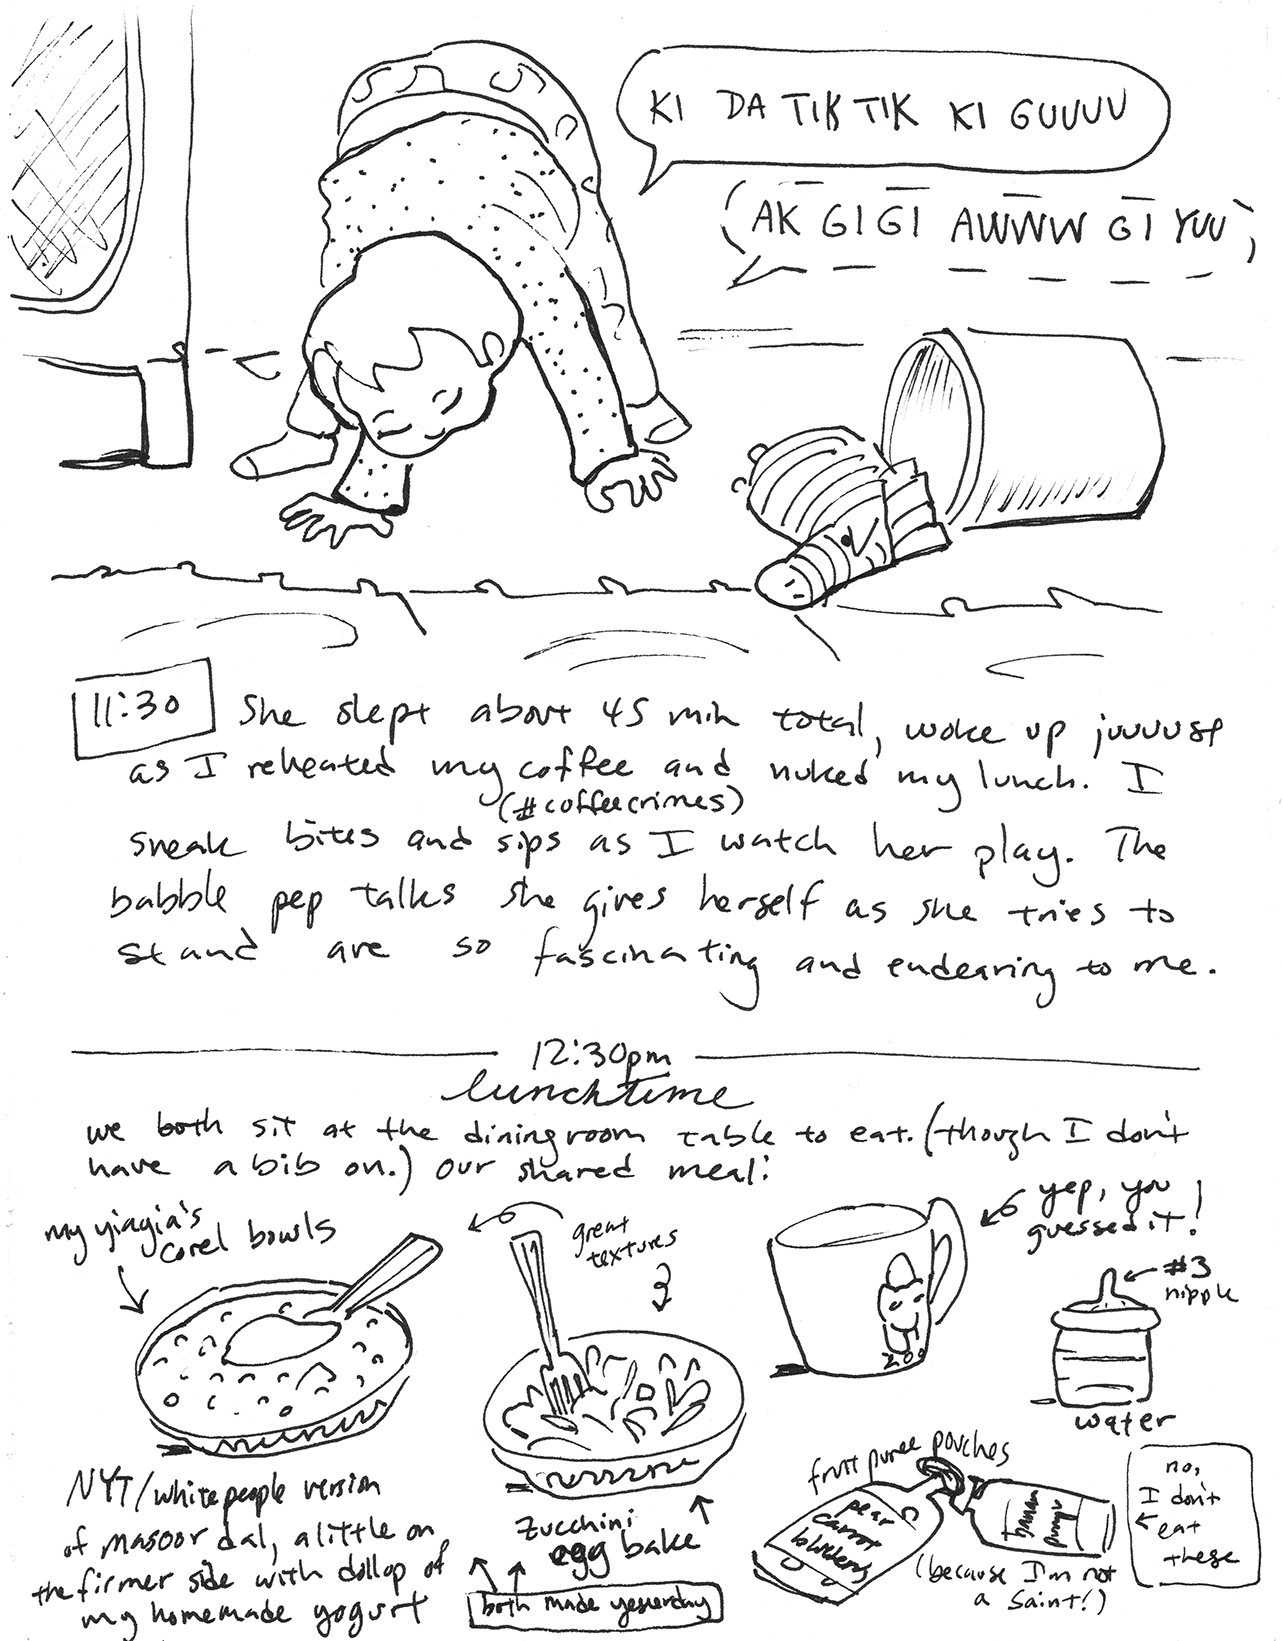 KI DA TIK TIK KI GUUUU
AK GIGI AWWWW GI YUU
11:30 She slept about 45 min total, woke up juuuust
as I reheated my coffee and nuked my lunch. I
(#coffeecrimes)
sneak bites and sips as I watch her play. The
babble pep talks she gives herself as she tries to
stand are so fascinating and endearing to me.
12:30pm
lunchtime
we both sit at the diningroom table to eat. (though I don't
have a bib on.) our shared meal:
my yiayia's
corel bowls
great
textures
yep, you
guessed it!
#3
nipple
200
water
NYT/white people version
of masoor dal, a little on
the firmer side with dollop of
my homemade yogurt
zucchini
egg bake
both made yesterday
fruit puree pouches
pear
carrot
blueberry
banan
(because I'm not
a saint!)
no,
I don't
eat
these